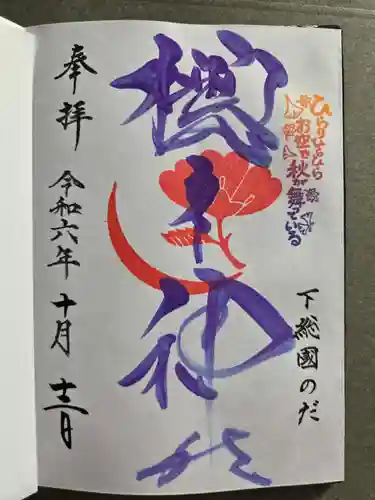 ひらりひらひら
お空で
秋が舞っている
下総國のだ
櫻木神社
奉拝
令和六年十月十二日